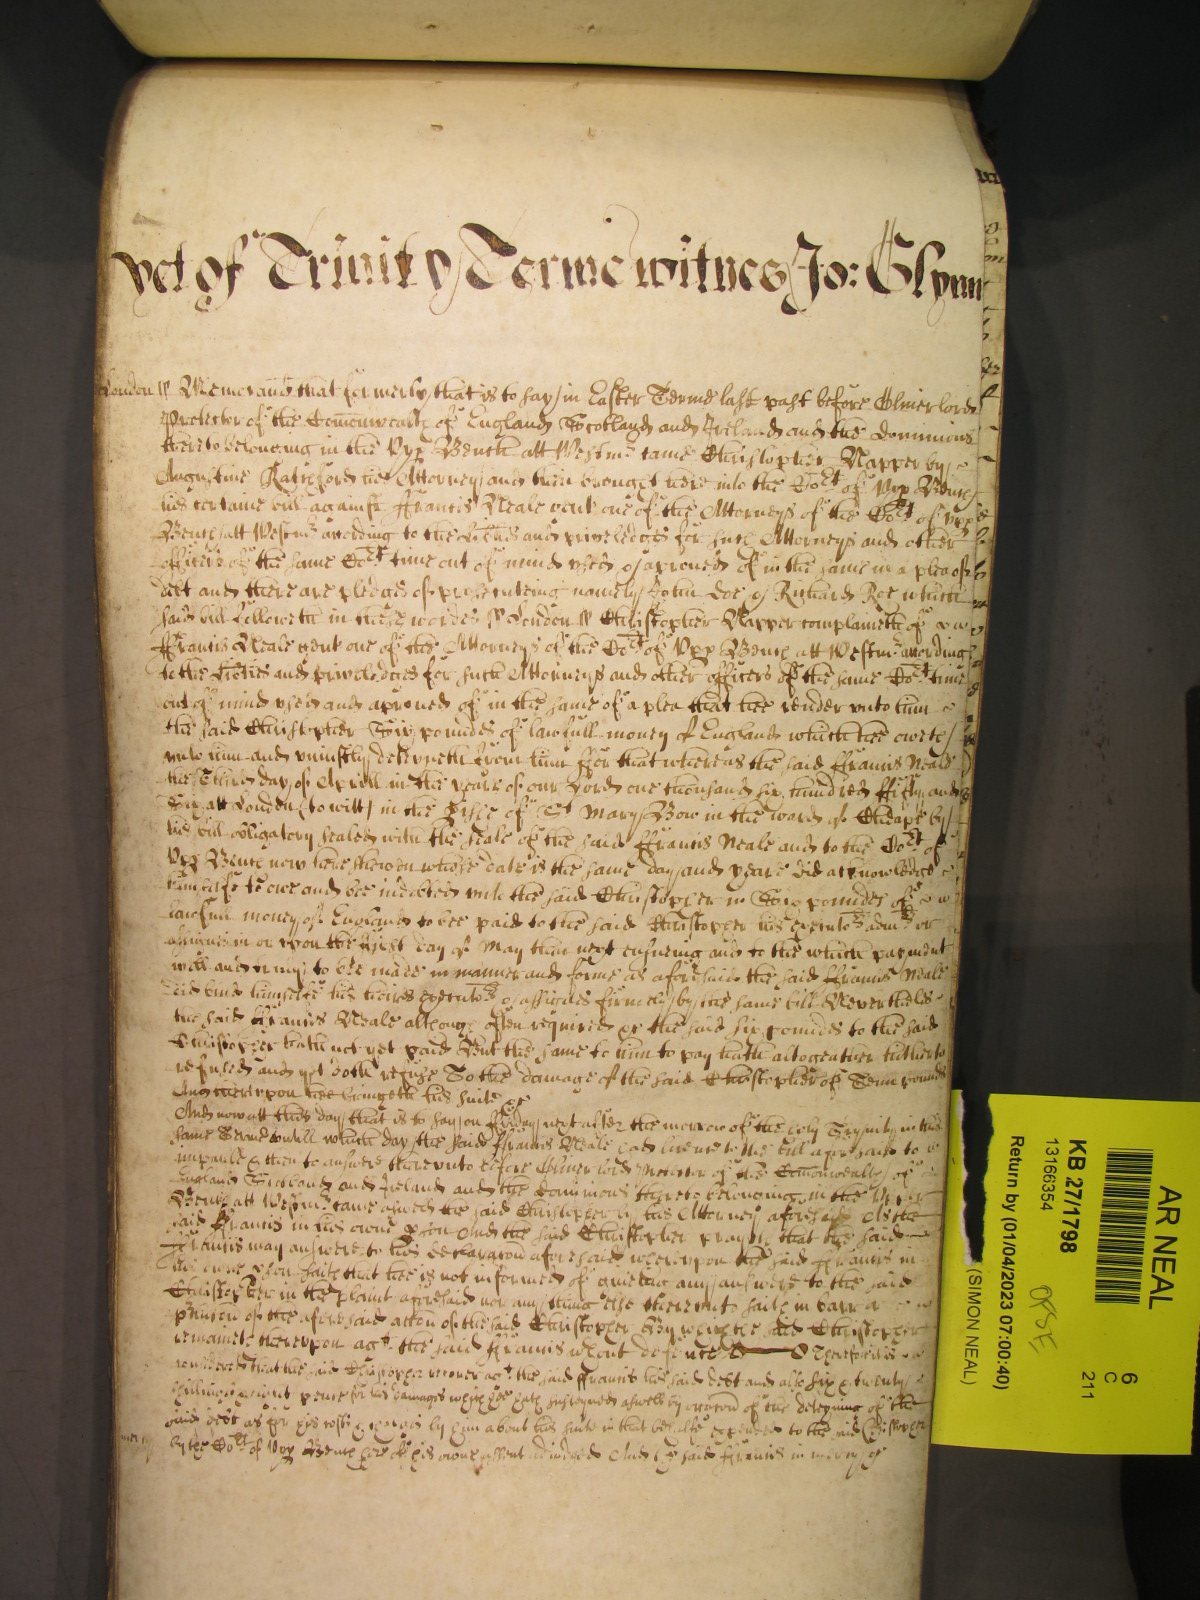 yet of Trinity Terme witnes Jo: Glynn
London ss Memorand that formerly that is to say in Easter Terme last past before Oliver lord
Protector of the Comonwealth of England Scotland and Ireland and the dominions
thereto belonging in the Upp Bench att Westmr came Christopher Napper by
Augustine his Attorney and then brought here into the Cort of Upp Bench
his certaine bill against Francis Neale gent one of the Attorneys of the Cort of Upp
Bench att Westmr according to the liberties and priviledges for such Attorneys and other
officers of the same Cort time out of mind used & aproued of in the same in a plea of
debt and there are pledges of prosecuteing namely John Doe & Richard Roe which
said bill followeth in these wordes ss London ss Christopher Napper complaineth of
Francis Neale gent one of the Attorneys of the Cort of Upp Bench att Westmr according
to the liberties and priviledges for such Attorneys and other officers of the same Cort time
out of mind used and aproued of in the same of a plea that hee render unto him
the said Christopher Six poundes of lawfull money of England which hee oweth
unto him and uniustly deteyneth from him For that whereas the said Francis Neale
the Third day of Aprill in the yeare of our Lord one thousand six hundred fifty and
Six att London to witt in the Pish of St Mary Bow in the ward of Cheape by
his bill obligatory sealed with the seale of the said Francis Neale and to the Cort of
Upp Bench now here shewen whose date is the same day and yeare did acknowledge
himselfe to owe and bee indebted unto the said Christopher in Six poundes of
lawfull money of England to bee paid to the said Christopher his executors admrs or
assignes in or upon the first day of May then next ensuing and to the which payment
well and truly to be made in manner and forme as aforesaid the said Francis Neale
did bind himselfe his heires executors & assignes firmely by the same bill Neverthelesse
the said Francis Neale although often required &c the said six poundes to the said
Christopher hath not yet paid But the same to him to pay hath altogeather hitherto
refused and yet doth refuse To the damage of the said Christopher of Tenn poundes
And thereupon hee bringeth his suite &c
And now att this day that is to say on Fryday next after the morrow of the holy Trynity in this
same Terme untill which day the said Francis Neale had licence to the bill aforesaid to
imparle & then to answere thereunto before Oliver lord Protector of the Comonwealth of
England Scotland and Ireland and the dominions thereto belonging in the Upp
Bench att Westmr came aswell the said Christopher by his Attorney aforesaid As the
said Francis in his owne pson And the said Christopher prayeth that the said
Francis may answere to his declaracon aforesaid whereupon the said Francis in
his owne pson saith that hee is not informed of giueing any answere to the said
Christopher in the plaint aforesaid nor any thing else thereunto saith in barr or
of the aforesaid accon of the said Christopher By which the said Christopher
remaineth thereupon agt the said Francis wthout defence &c Therefore it is
considered that the said Christopher recover agt the said Francis his said debt and also six & twenty
shillings pence for his damages which hee hath susteyned aswell by occacon of the deteyning of the
said debt as for his costs & charges by him about his suite in that behalfe expended to the said Christopher
by the Cort of Upp Bench here of his owne assent adiudged And the said Francis in mercy &c
AR NEAL
6
C
211
KB 27/1798
13166354
Return by (01/04/2023 07:00:40)
(SIMON NEAL)